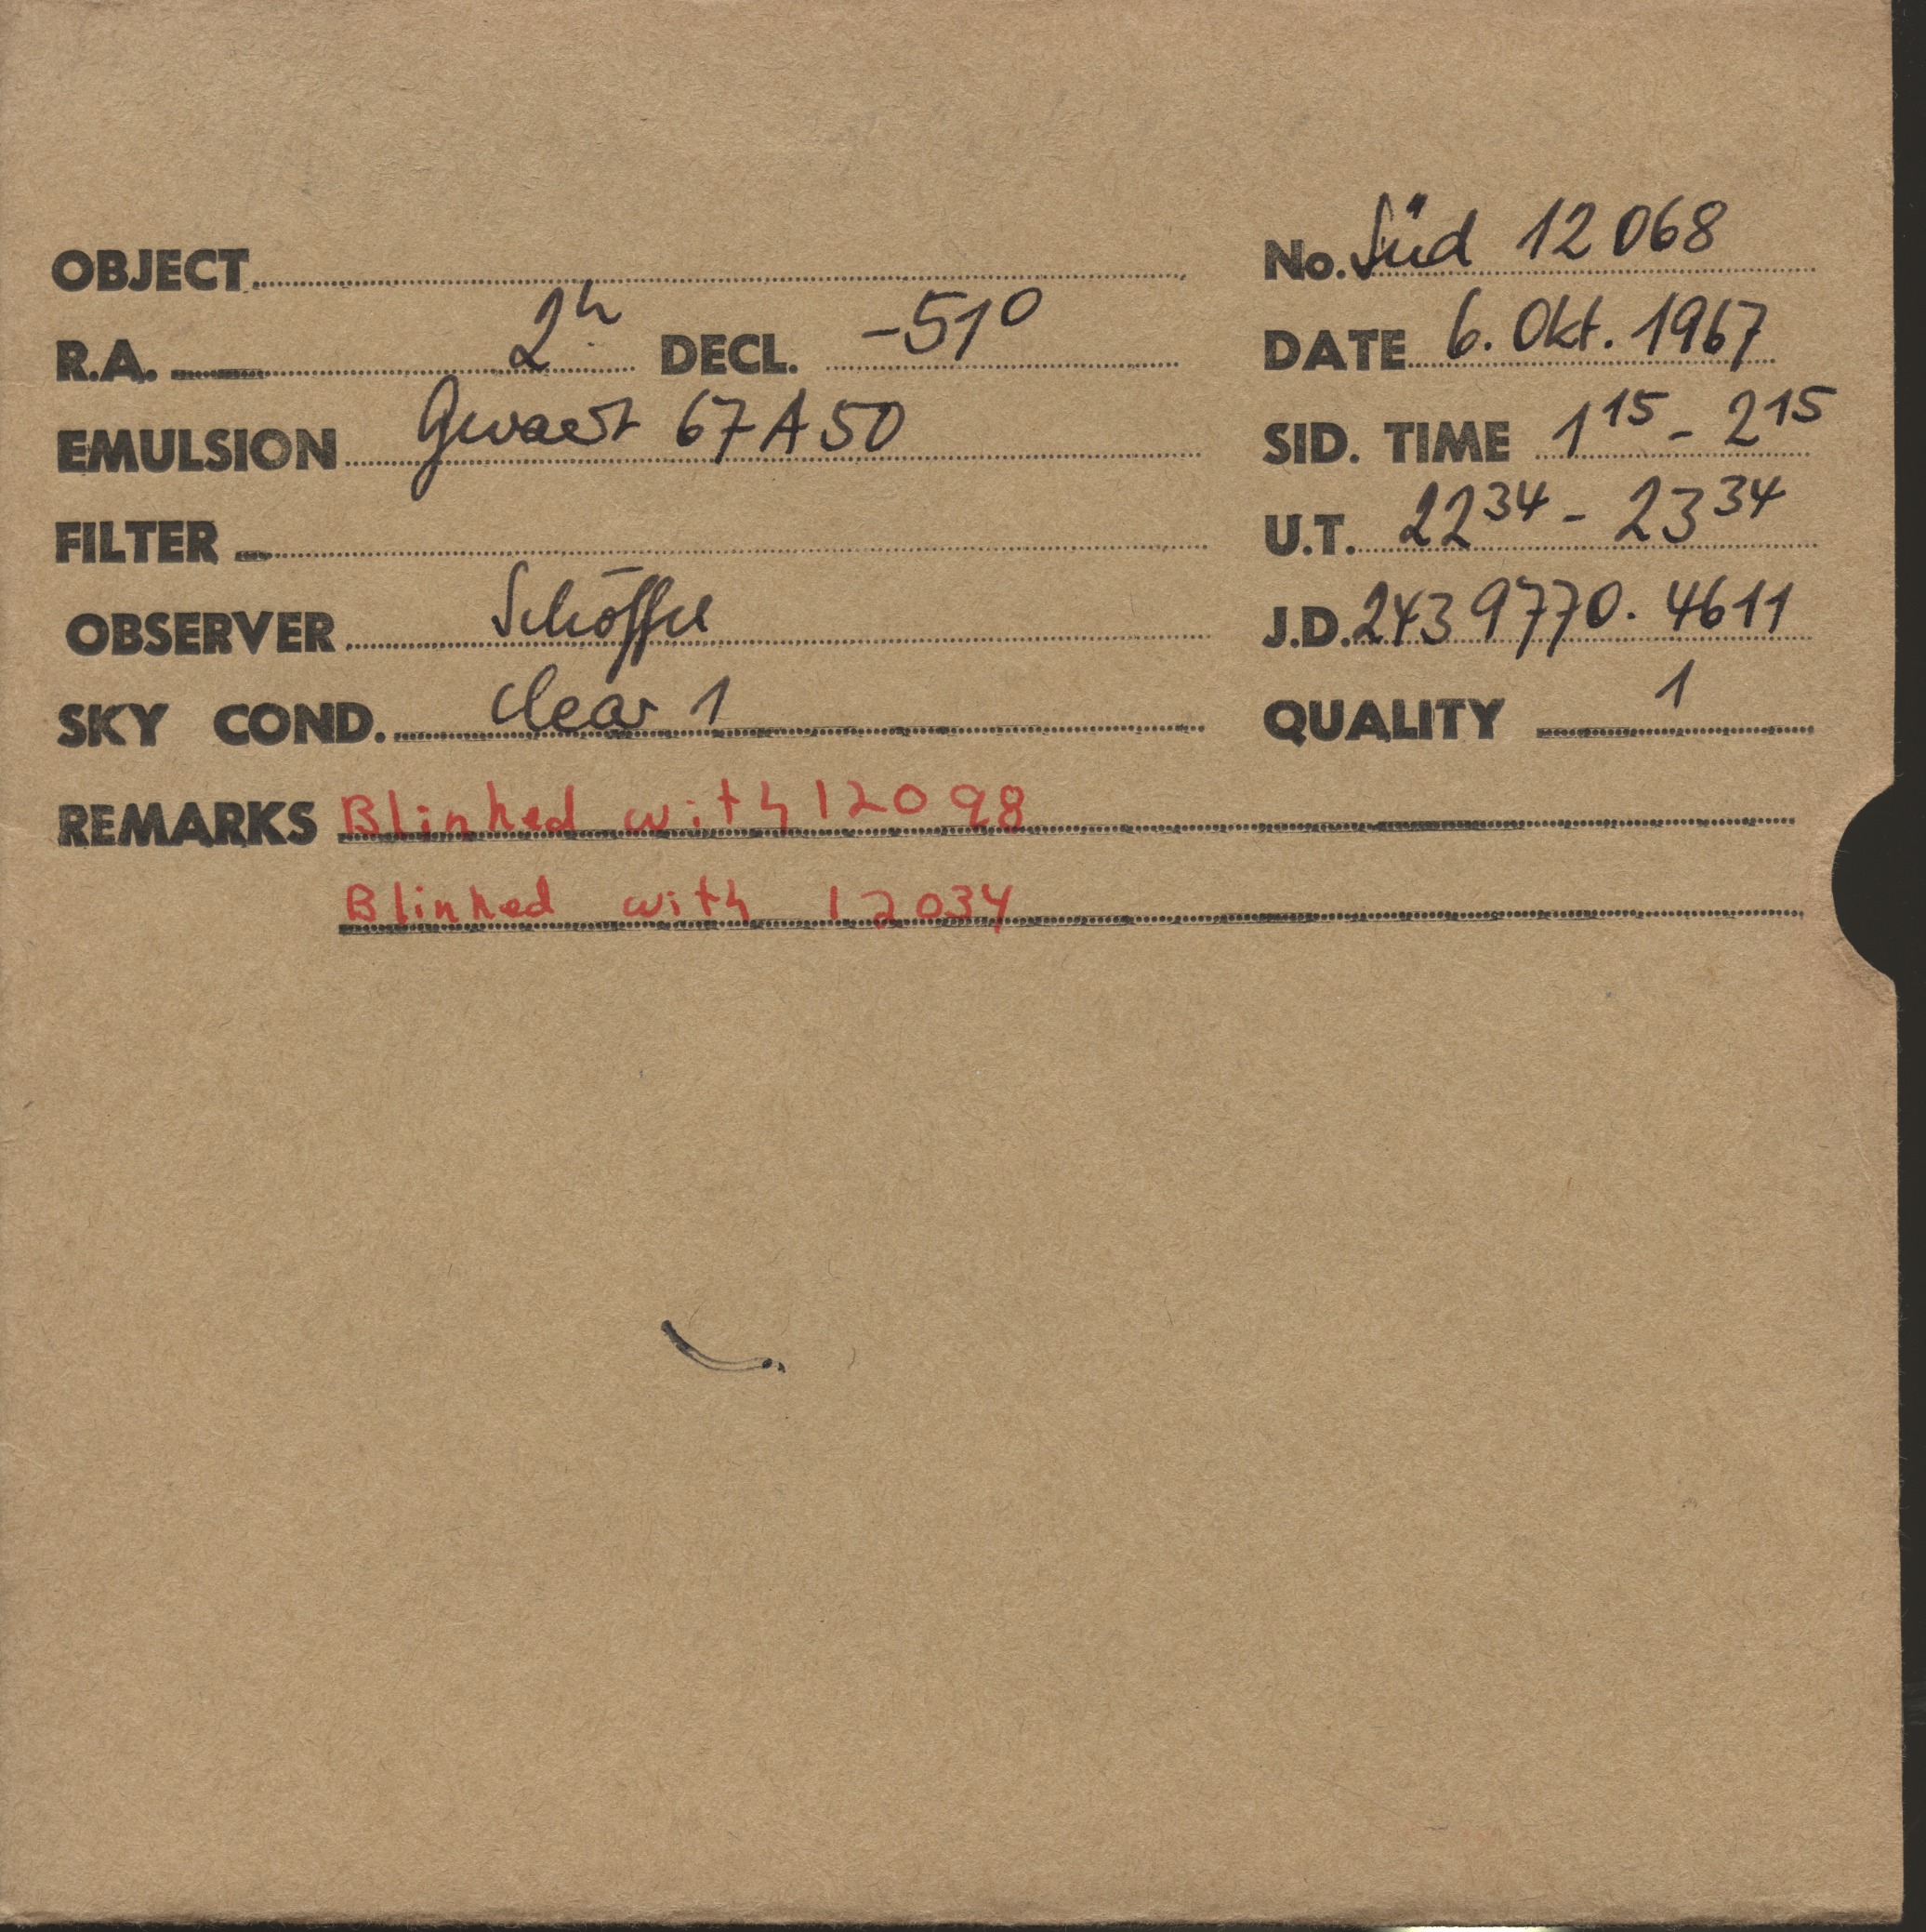 OBJECT No. Süd 12 068
R.A. 2h DECL. -51° DATE 6. Okt. 1967
EMULSION Gevaert 67 A 50 SID. TIME 1 15 - 2 15
FILTER U.T. 22 34 - 23 34
OBSERVER Schöffel J.D. 243 9770. 4611
SKY COND. clear 1 QUALITY 1
REMARKS Blinked with 12098
Blinked with 12034